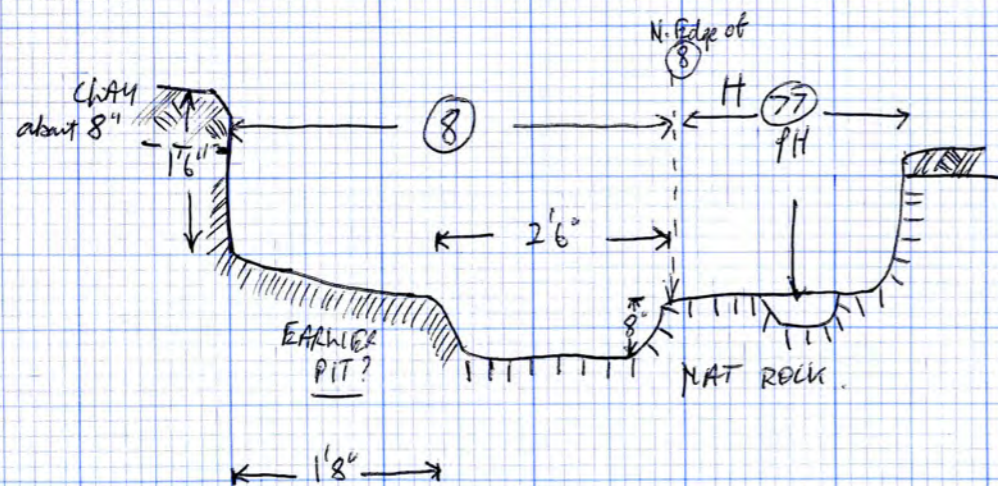 N. Edge of
8
CLAY
about 8"
1'6"
8
H
77
PH
2'6"
8"
EARLIER
PIT?
NAT ROCK.
1'8"